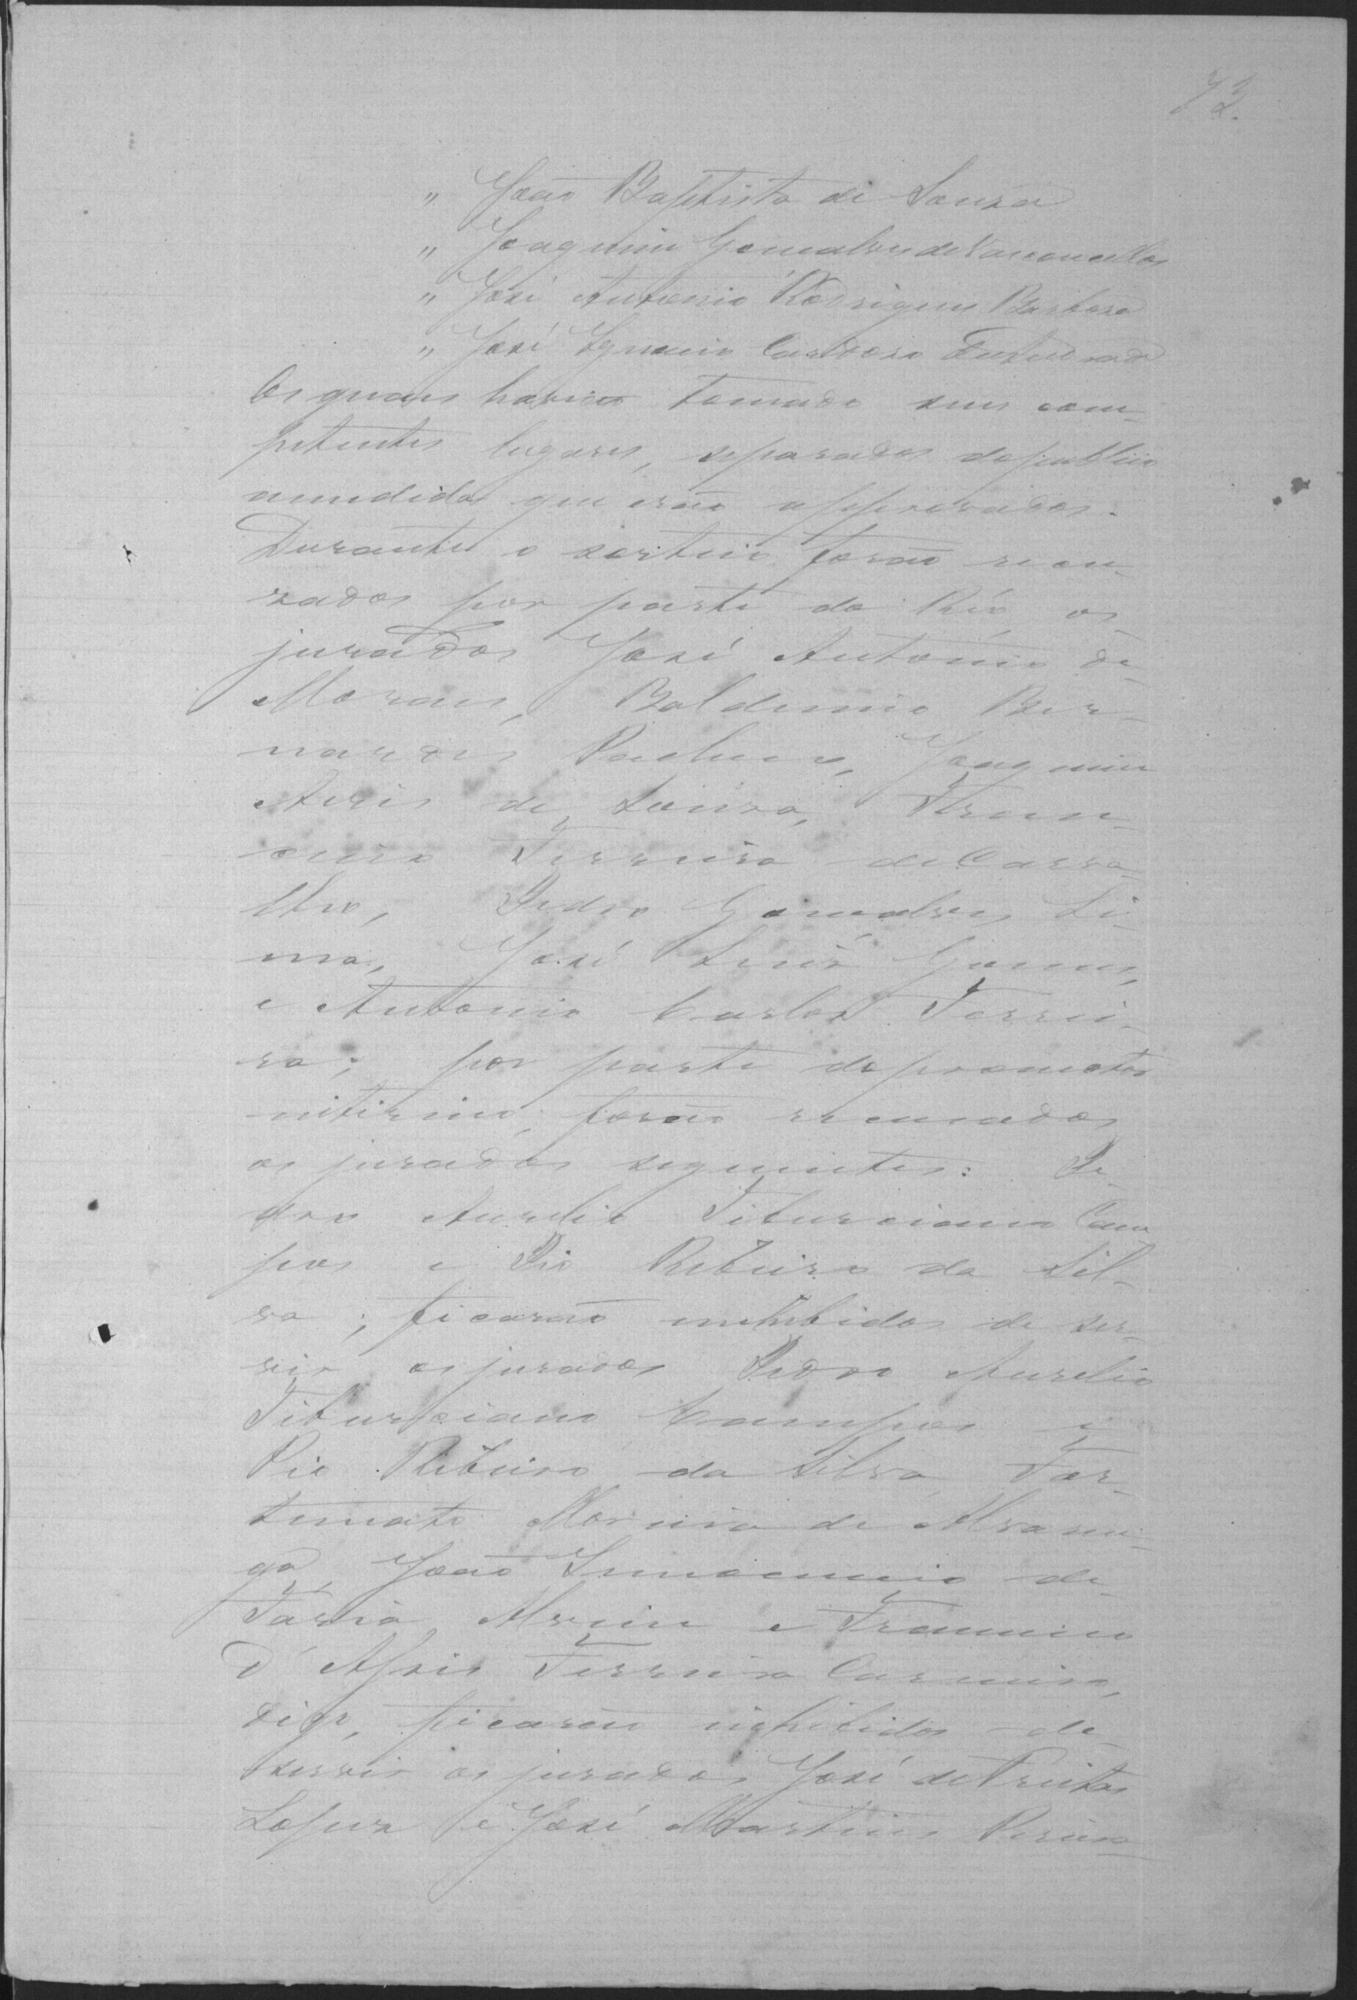 73.
" João Baptista de Souza
" Joaquim Gonçalves de Vasconcellos
" José Antonio Rodrigues Barbosa
" José Ignacio Cardoso
Os quaes havião tomado seus com-
petentes lugares, separados do publico
a medida que erão approvados.
Durante o sorteio forão recu-
zados por parte do Réo os
jurados José Antonio de
Moraes, Balduino Ber-
nardes Joaquim
Aires de Souza, Fran-
cisco Ferreira de Carva-
lho, Pedro Gonçalves Li-
ma, José Luis Gomes,
e Antonio Carlos Ferrei-
ra; por parte do promotor
interino, forão recuzados
os jurados seguintes: Pe-
dro Aurelio Tiburciano Cam
pos e Pio Ribeiro da Sil-
va; ficarão inhibidos de ser-
vir os jurados Pedro Aurelio
Tiburciano Campos e
Pio Ribeiro da Silva, For-
tunato Moreira de Alvaren-
ga, João Innocencio de
Faria Alvim e Francisco
d'Assis Ferreira
digo, ficarão inhibidos de
servir os jurados José de Freitas
Lopes e José Martins Pereira